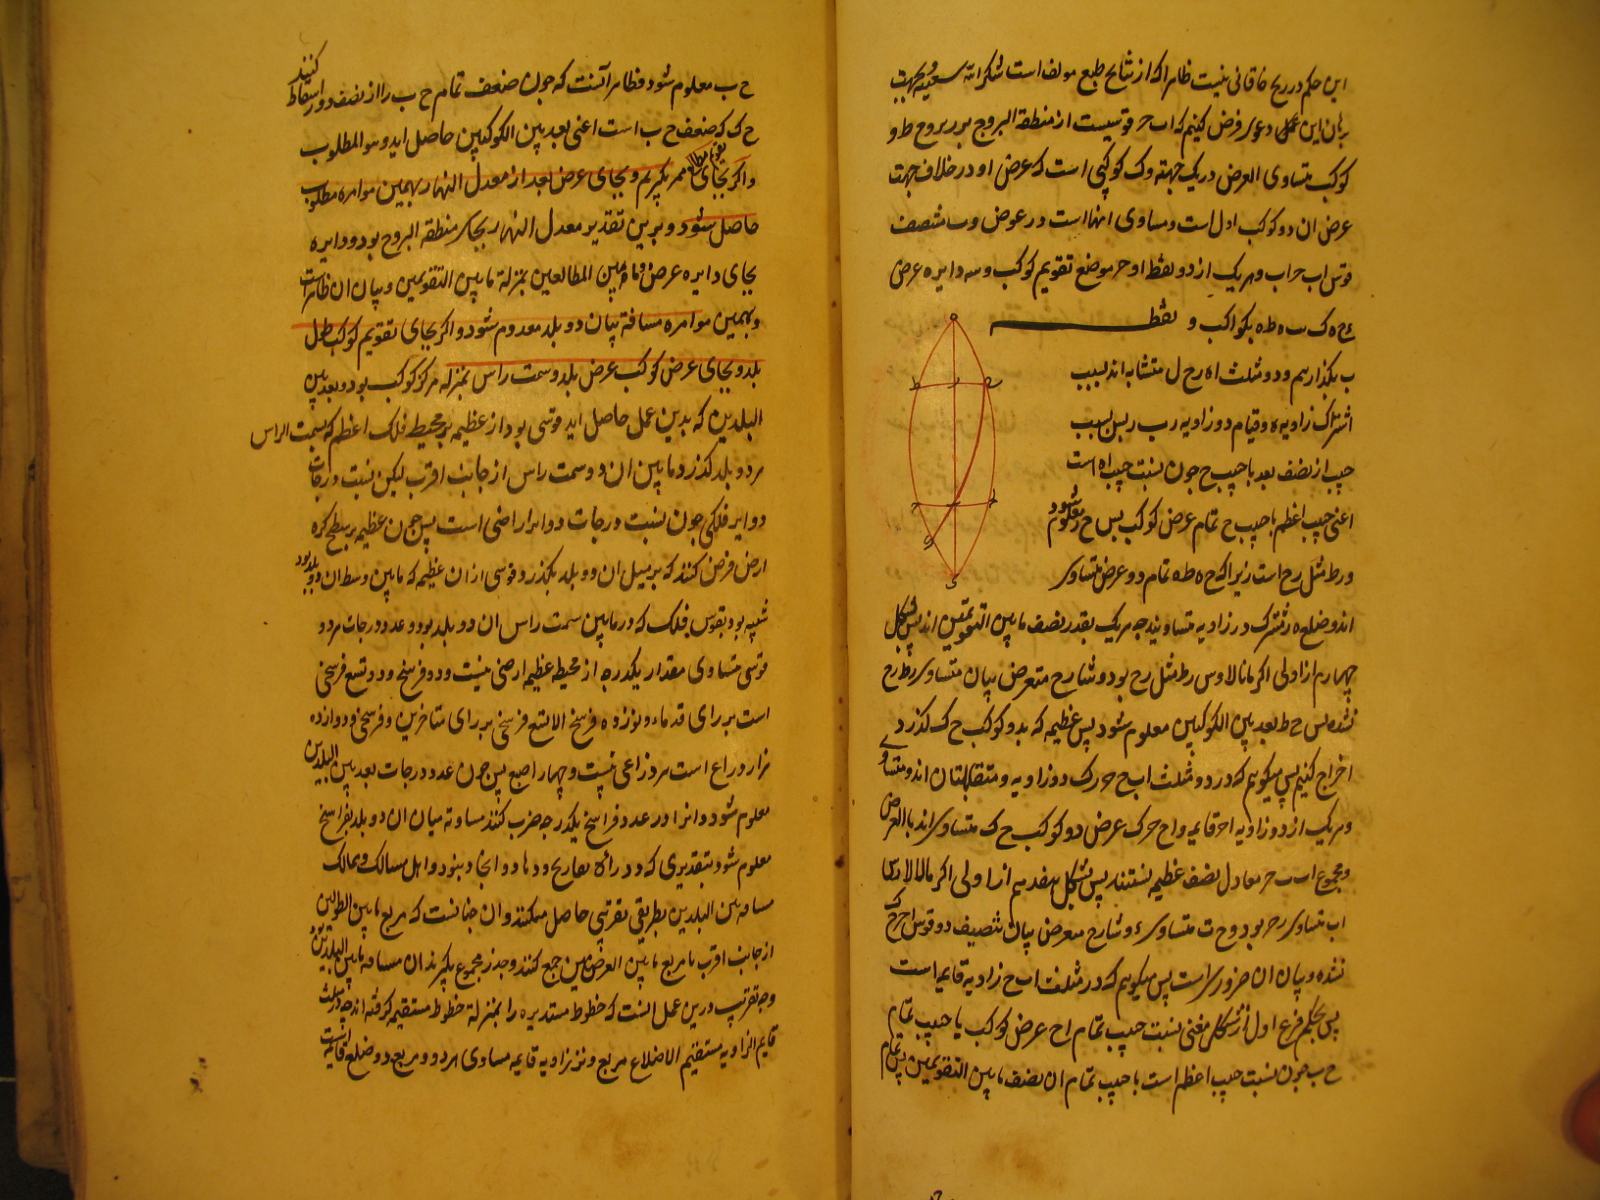 این حکم در زیج خاقانی نیست ظاهرا که از نتایج طبع مولف است شکر الله سعیه و بجهت
برهان این عمل و دعوی فرض کنیم که اب ح قوسیست از منطقة البروج بر بروج ط و
کوکب متساوی العرض در یک جهة و ک کوکبی است که عرض او در خلاف جهت
عرض ان دو کوکب اول است و مساوی انها است در عرض و ب منتصف
قوس اب ح اب و هر یک از دو نقطه ا و ح موضع تقویم کوکب و سه دایره عرض
ه ک ب ه ط ه بکواکب و نقطه
ب بگذاریم و دو مثلث اه ر ح ل متشابه اند لسبب
اشتراک زاویه ه و قیام دو زاویه رب ر پس نسبت
جیب از نصف بعد با جیب ح چون نسبت جیب اه است
اعنی جیب اعظم با جیب ح تمام عرض کوکب پس ح ر معلوم شود
و ر ط مثل رح است زیرا که ح ه ط ه تمام دو عرض متساوی
اند و ضلع ه ر مشترک در زاویه متساویند چه هر یک بقدر نصف مابین التقویمین اند پس بشکل
چهارم از اولی اکر مانالاوس ر ط مثل رح بود و شارح متعرض بیان متساوی ر ط رح
نشده پس ح ط بعد بین الکوکبین معلوم شود پس عظیمه که بدو کوکب ح ک گذرد
اخراج کنیم پس میگویم که در دو مثلث اب ح ح ر ک دو زاویه و متقابلتان اند و متساوی
و هر یک از دو زاویه ا ح قایمه و ا ح ح ر ک عرض دو کوکب ح ک متساوی اند بالفرض
و مجموع اب ب ح معادل نصف عظیمه نیستند پس بشکل هفدهم از اولی اکر مانالاوس
اب متساوی ر ح بود و ح ب متساوی و شارح متعرض بیان تنصیف دو قوس ا ح ح ک
نشده و بیان ان ضروری است پس میگویم که در مثلث اب ح زاویه قایمه است
پس بحکم فرع اول از شکل مغنی نسبت جیب تمام اح عرض کوکب با جیب تمام
ح ب چون نسبت جیب اعظم است با جیب تمام ان نصف مابین التقویمین پس تمام
ح ب معلوم شود و ظاهر انست که چون ضعف تمام ح ب را از نصف دور اسقاط کنند
ح ک که ضعف ح ب است اعنی بعد بین الکوکبین حاصل اید و هو المطلوب
و اگر بجای تقویم مطالع ممر بگیریم و بجای عرض بعد از معدل النهار بهمین موامره مطلوب
حاصل شود و برین تقدیر معدل النهار بجای منطقة البروج بود و دایره
بجای دایره عرض و ما بین المطالعین بمنزلة مابین التقویمین و بیان ان ظاهر است
و بهمین موامره مسافة میان دو بلد معلوم شود و اگر بجای تقویم کوکب طول
بلد و بجای عرض کوکب عرض بلد و سمت راس بمنزله مرکز کوکب بود و بعد بین
البلدین که بدین عمل حاصل اید قوسی بود از عظیمه بر محیط فلک اعظم که بسمت الراس
هر دو بلد گذرد مابین ان دو سمت راس از جانب اقرب لیکن نسبت درجات
دوایر فلکی چون نسبت درجات دوایر ارضی است پس چون عظیمه بر سطح کره
ارض فرض کنند که بر میل ان دو بلد بگذرد و قوسی از ان عظیمه که مابین وسط ان دو بلد بود
شبیه بود بقوس فلک که در مابین سمت راس ان دو بلد بود و عدد درجات هر دو
قوسی متساوی مقدار یکدرجه از محیط عظیم ارضی نیست و دو فرسخ و دو تسع فرسخی
است بر رای قدماء و نوزده فرسخ الا تسع فرسخی بر رای متاخرین و فرسخ دوازده
هزار ذراع است هر ذراعی بیست و چهار اصبع پس چون عدد درجات بعد بین البلدین
معلوم شود و انرا در عدد فراسخ یکدرجه ضرب کنند مسافة میان ان دو بلد بفراسخ
معلوم شود بتقدیری که در راه تعاریج و وهاد و انجاد نبود و اهل مسالک و ممالک
مسافة بین البلدین بطریقی تقریبی حاصل میکنند و ان چنانست که مربع مابین الطولین
از جانب اقرب با مربع مابین العرضین جمع کنند و جذر مجموع بگیرند ان مسافة مابین البلدین بود
وجه تقریب درین عمل انست که خطوط مستدیره را بمنزلة خطوط مستقیم گرفته اند چه در مثلث
قایم الزاویه مستقیم الاضلاع مربع وتر زاویه قایمه مساوی هر دو مربع دو ضلع قایمه است